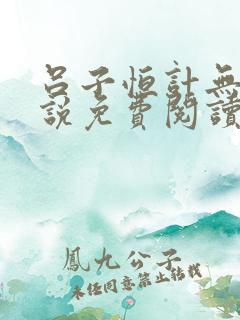 呂子恒計無
說免費閱讀
鳳九公子
未經同意禁止轉載